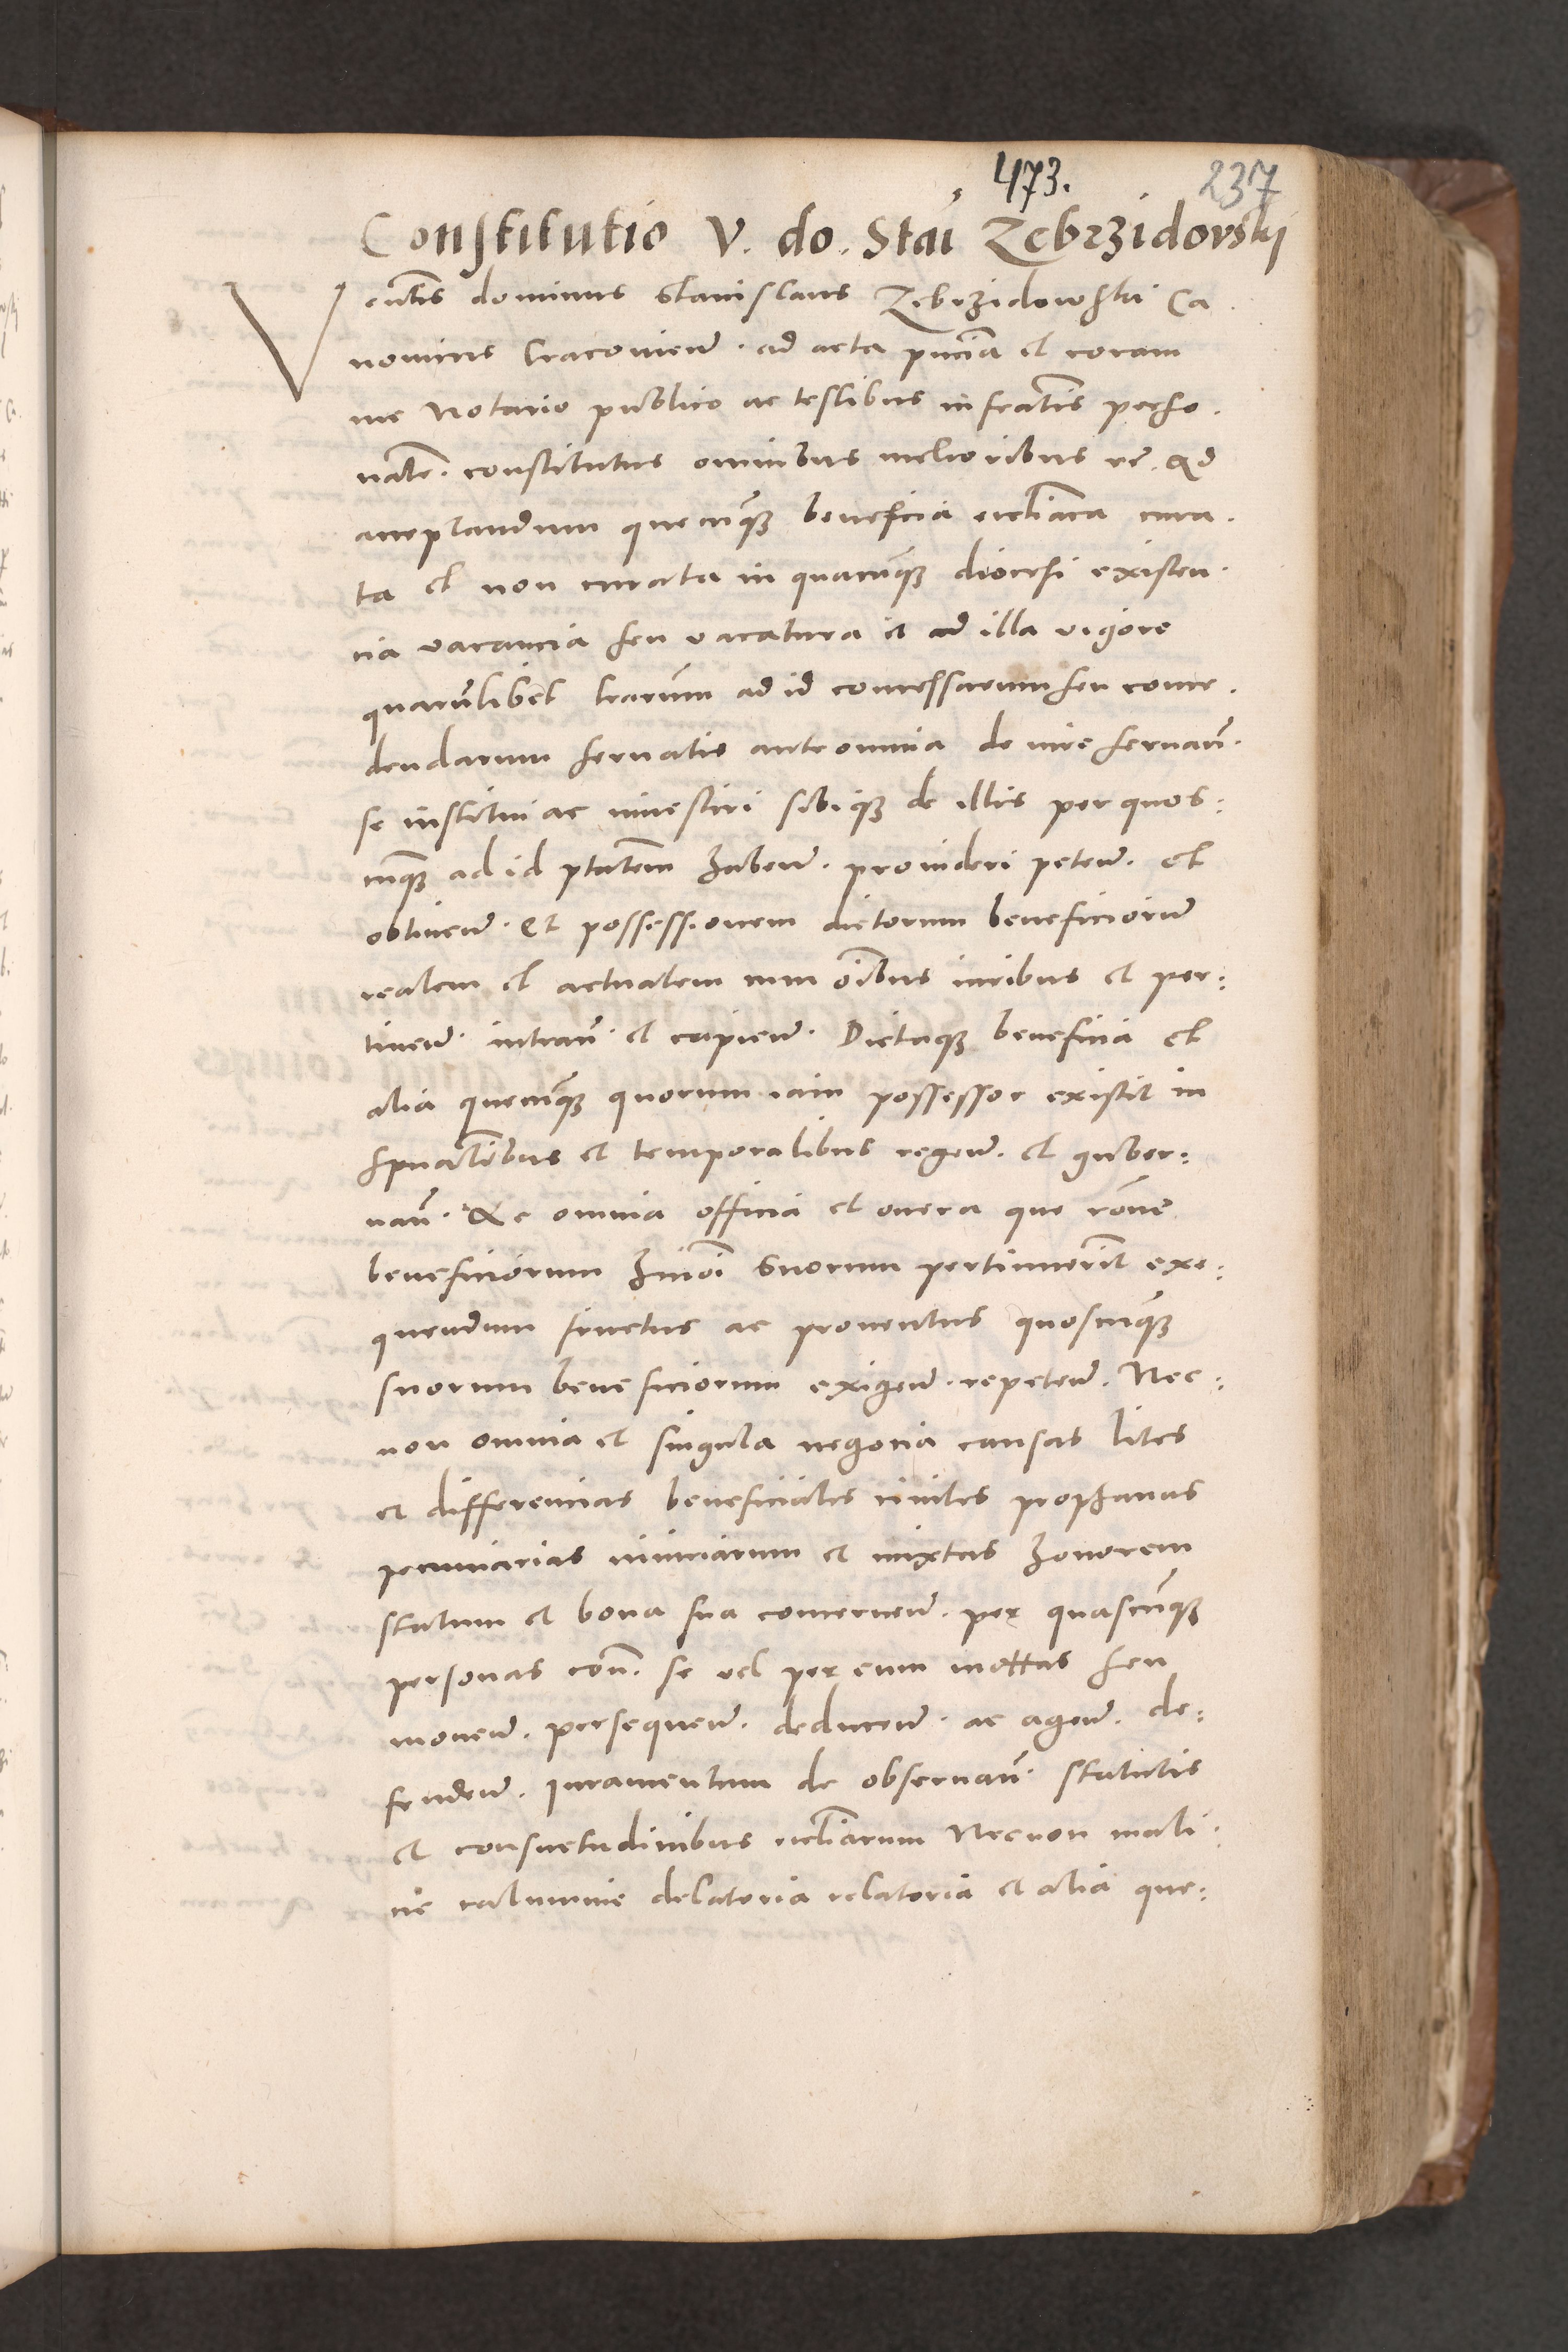 473.
237
Constitutio V. do. Stāi Zebrzidovskij
Venēlis dominus Stanislaus Zebrzidowski Ca
nonicus Cracovien̄. ad acta pn̄cia et coram
me Notario publico ac testibus infrāctis perso.
nalr̄. constitutus omnibus melioribus rē. Ad
acceptandum quecunqȝ beneficia ecclīāca cura.
ta et non curata in quacunqȝ diocesi existen.
cia vacancia seu vacatura et ad illa vigore
quarūlibet l̄rarum ad id concessarum seu conce.
dendarum servatis ante omnia de iure servan̄.
se institui ac investiri sibiqȝ de illis per quos:
cunqȝ ad id p̄tatem haben̄. provideri peten̄. et
obtinen̄. Et possessionem dictorum beneficiorum
realem et actualem cum oībus iuribus et per:
tinen̄. intran̄. et capien̄. Dictaqȝ beneficia et
alia quecunqȝ quorum iam possessor existit in
sp̄ualibus et temporalibus regen̄. et guber:
nan̄. Ac omnia officia et onera que rōne
beneficiorum hm̄oi suorum pertinuerīt exe:
quendum fructus ac proventus quoscunqȝ
suorum beneficiorum exigen̄. repeten̄. Nec:
non omnia et singula negocia causas lites
et differencias beneficiales civiles prophanas
pecuniarias iniuriarum et mixtas honorem
statum et bona sua concernen̄. per quascunqȝ
personas con̄. se vel per eum mottas seu
moven̄. persequen̄. deducen̄. ac agen̄. de:
fenden̄. Iuramentum de observan̄. statutis
et consuetudinibus ecclīarum Necnon mali.
cie calumnie delatoria relatoria et alia que: